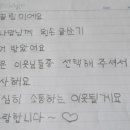 끌림이에요
나랑님께 뭔손글쓰기
거 받았어요
은 이웃님들중 선택해 주셔서
사해요
심히 소통하는 이웃될게요
사랑합니다 ~ ♡